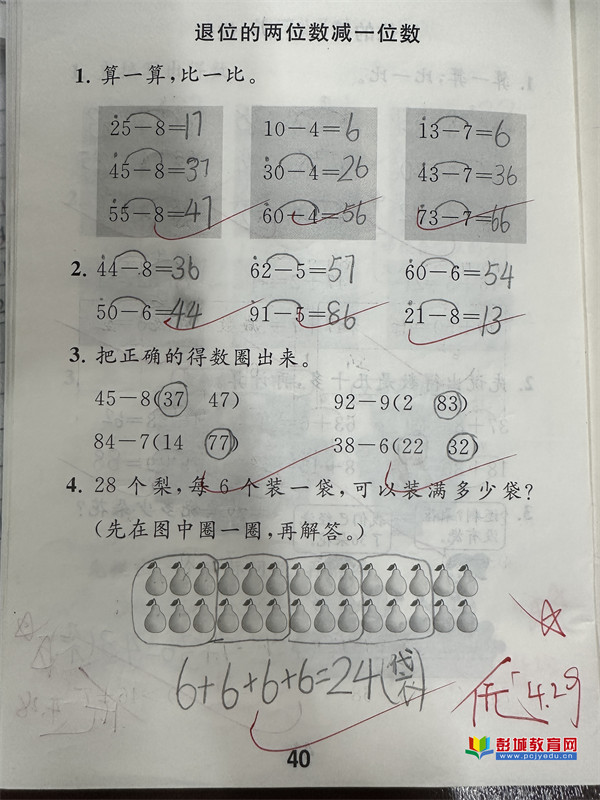 退位的两位数减一位数
1. 算一算,比一比。
25-8=17 10-4=6 13-7=6
45-8=37 30-4=26 43-7=36
55-8=47 60-4=56 73-7=66
2. 44-8=36 62-5=57 60-6=54
50-6=44 91-5=86 21-8=13
3. 把正确的得数圈出来。
45-8(37 47) 92-9(2 83)
84-7(14 77) 38-6(22 32)
4. 28 个梨,每 6 个装一袋,可以装满多少袋?
(先在图中圈一圈,再解答。)
6+6+6+6=24(袋)
4.29
彭城教育网
www.pcjyedu.cn
40